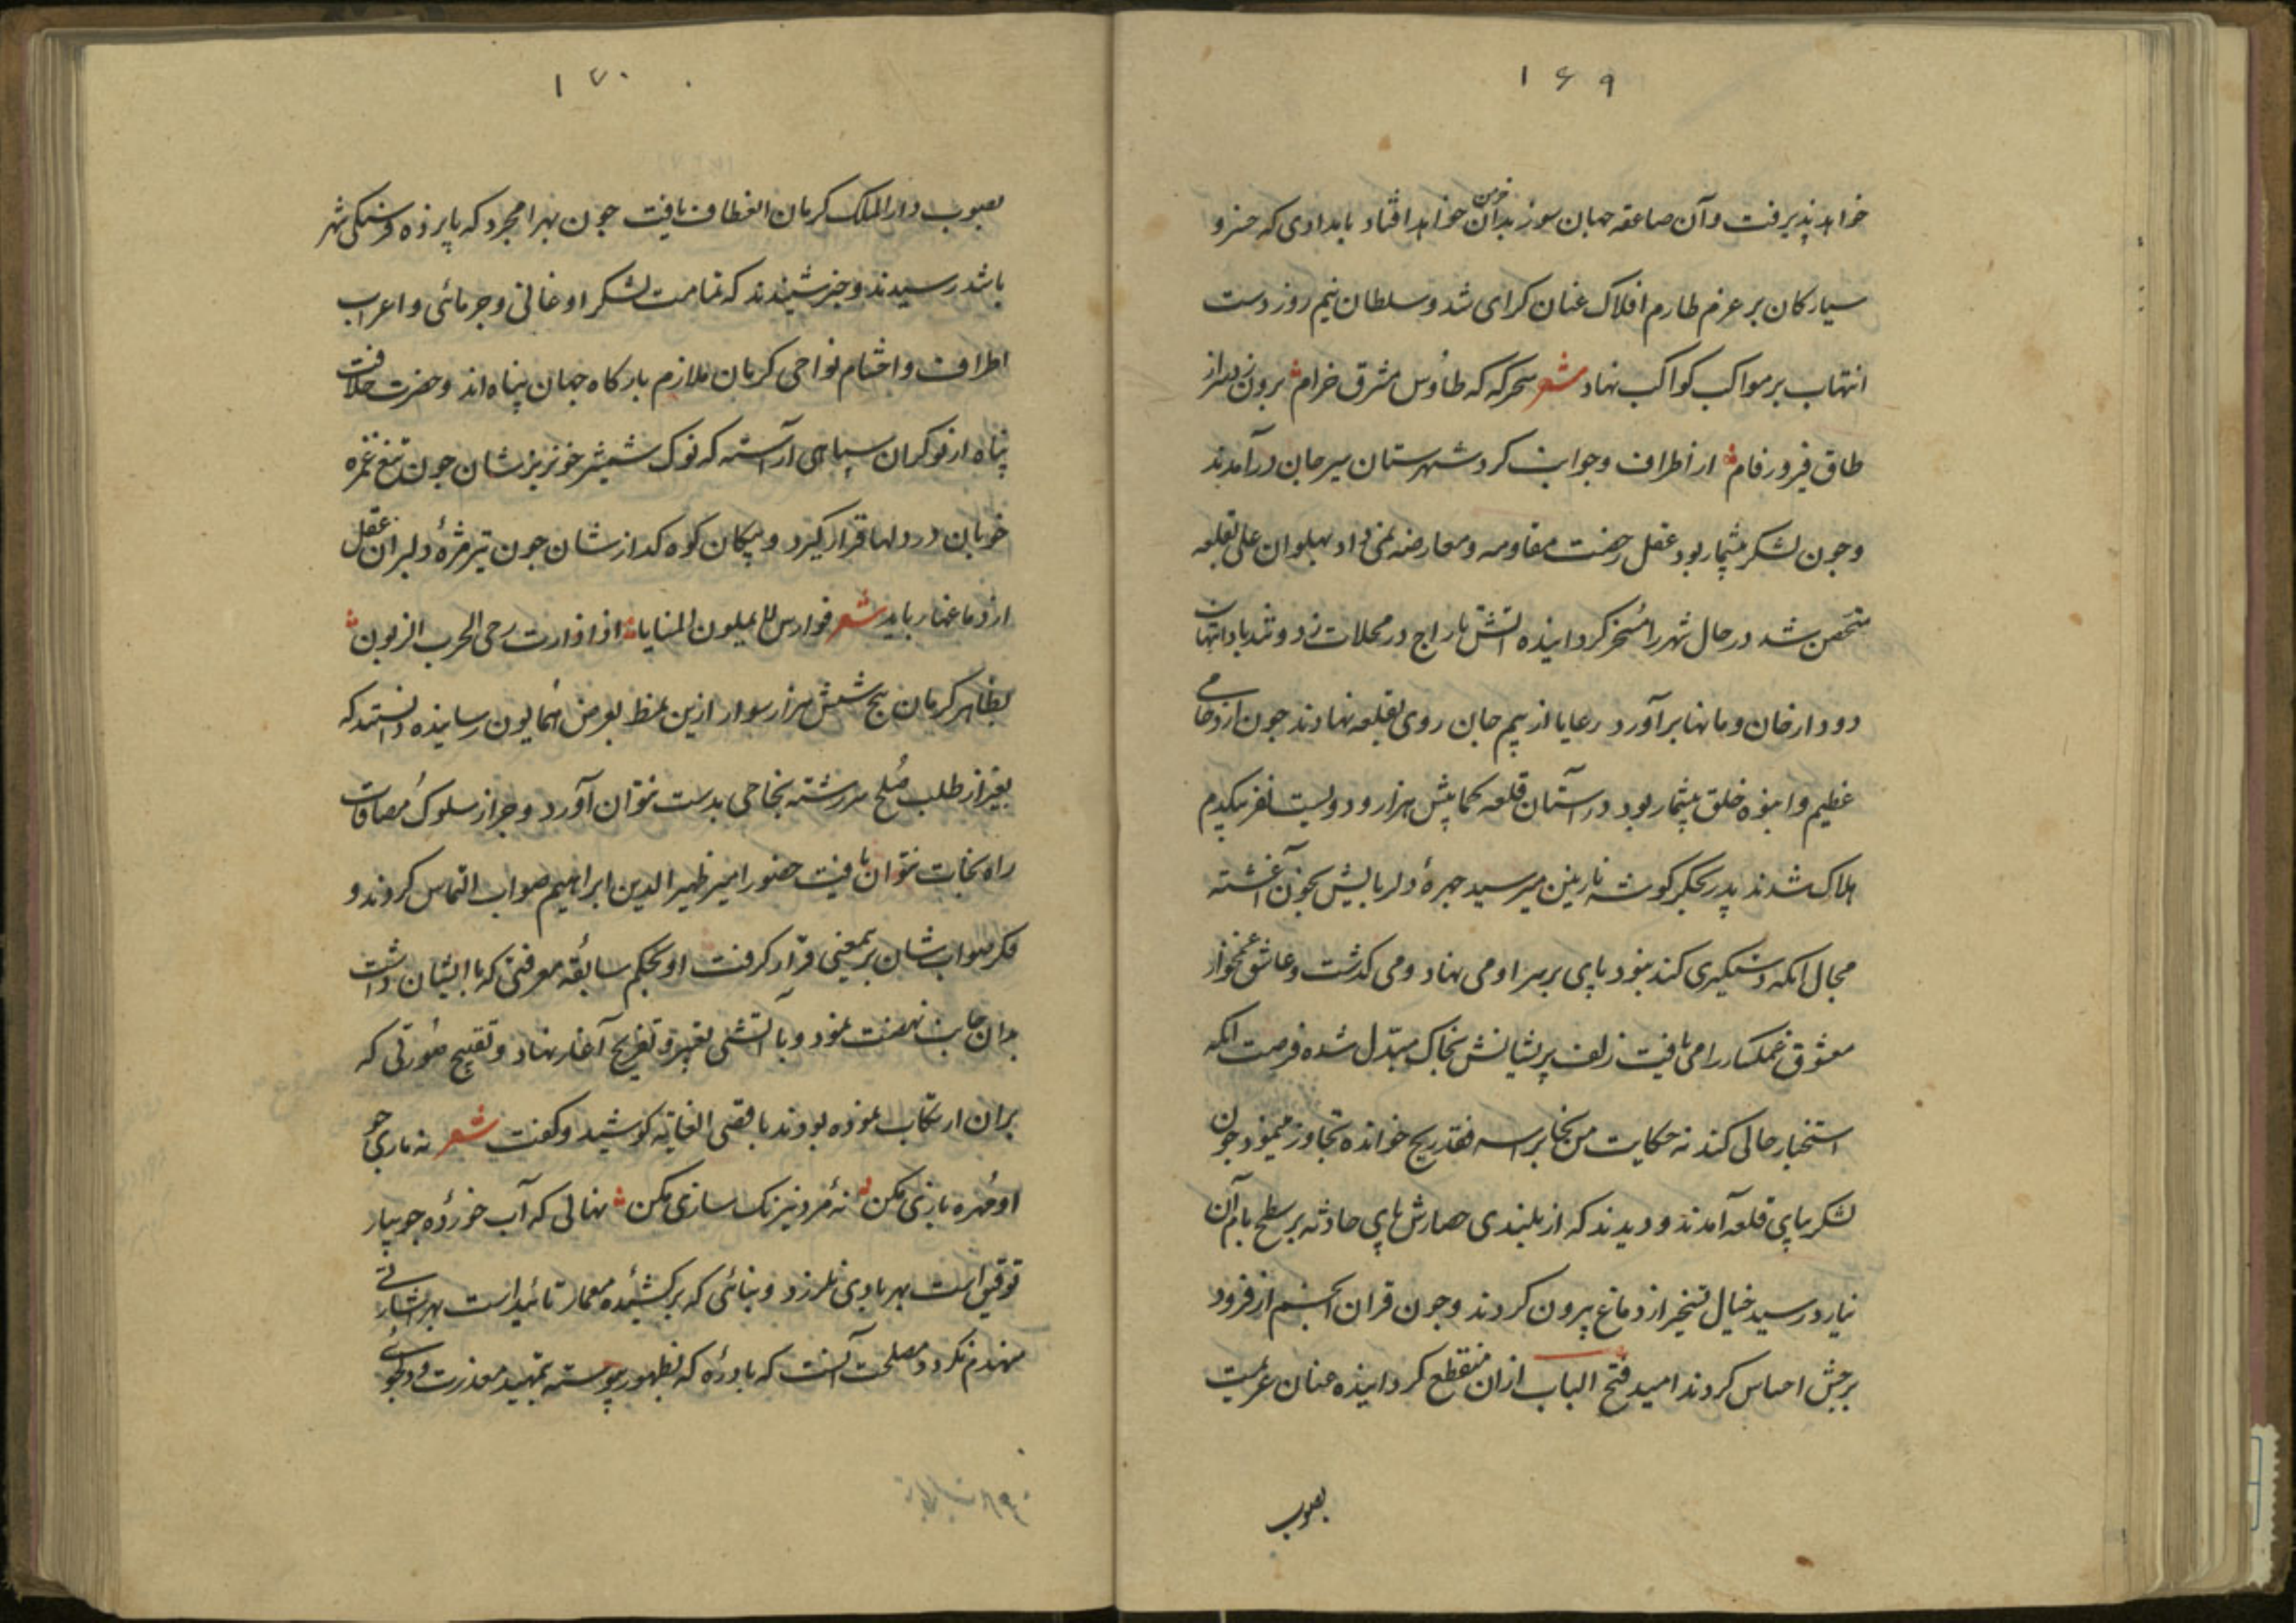 ۱۶۹
خواهد پذیرفت و آن صاعقه جهان سوز بدان خرمن خواهد افتاد بامدادی که خسرو
سیارکان بر عزم طارم افلاک عنان کرای شد و سلطان نیم روز دست
انتهاب بر مواکب کواکب نهاد شعر سحرکه که طاوس مشرق خرام برون زد سر از
طاق فیروزه فام از اطراف و جوانب کرد شهرستان سیرجان درآمدند
و جون لشکر بیشمار بود عقل رخصت مقاومه و معارضه نمی داد بهلوان علی بقلعه
متحصن شد در حال شهر را مسخر کردانیده اتش تاراج در محلات زد و تندباد انتهاب
دود از خان و مانها برآورد رعایا از بیم جان روی بقلعه نهادند جون ازدحامی
عظیم و انبوه خلق بیشمار بود در آستان قلعه کمابیش هزار و دویست نفر بیکدم
هلاک شدند پدر بجکرکوشه نازنین میرسید جهرهٔ دلربایش بخون آغشته
مجال انکه دستکیری کند نبود پای بر سر او می نهاد و می کذشت و عاشق غمخوار
معشوق غمکسار را می یافت زلف پریشانش بخاک مبدل شده فرصت انکه
استخبار حالی کند نه حکایت من نجا براسه فقد ربح خوانده تجاوز مینمود جون
لشکر بپای قلعه آمدند و دیدند که از بلندی حصارش پای حادثه بر سطح بام آن
نیارد رسید خیال تسخیر از دماغ بیرون کردند و جون قران انجم از فرود
برجش احساس کردند امید فتح الباب ازان منقطع کردانیده عنان عزیمت
بصوب
۱۷۰
بصوب دارالملک کرمان انعطاف یافت جون بهرامجرد که پانزده فرسنکی شهر
باشد رسیدند و خبر شنیدند که تمامت لشکر اوغانی و جرمائی و اعراب
اطراف و احشام نواحی کرمان ملازم بارکاه جهان پناه اند و حضرت خلافت
پناه از نوکران سپاهی آراسته که نوک شمشیر خونریزشان جون تیغ غمزه
خوبان در دلها قرار کیرد و پیکان کوه کدازشان جون تیر مژهٔ دلبران عقل
از دماغها رباید شعر فوارس لا یملون المنایا اذا دارت رحی الحرب الزبون
بظاهر کرمان پنج شش هزار سوار ازین نمط بعرض همایون رسانیده دانستند که
بغیر از طلب صلح سررشته نجاحی بدست نتوان آورد و جز از سلوک مصافات
راه نجات نتوان یافت حضور امیر ظهیرالدین ابراهیم صواب التماس کردند و
فکر صواب شان بر بمعنی قرار کرفت او بحکم سابقه معرفتی که با ایشان داشت
بدان جانب نهضت نمود و با آتشی تعییر و تفریح آغاز نهاد و تقبیح صورتی که
بران ارتکاب نموده بودند باقصی الغایه کوشید و کفت شعر نه ماری جو
او مهره بازی مکن نه مرد نیرنک سازی مکن نهالی که آب خورده جویبار
توفیق است بهر بادی نلرزد و بنائی که برکشیده معمار تائید است بهر اشارتی
منهدم نکردد مصلحت آنست که بادره که بظهور پیوسته بتمهید معذرت و دلجوئی